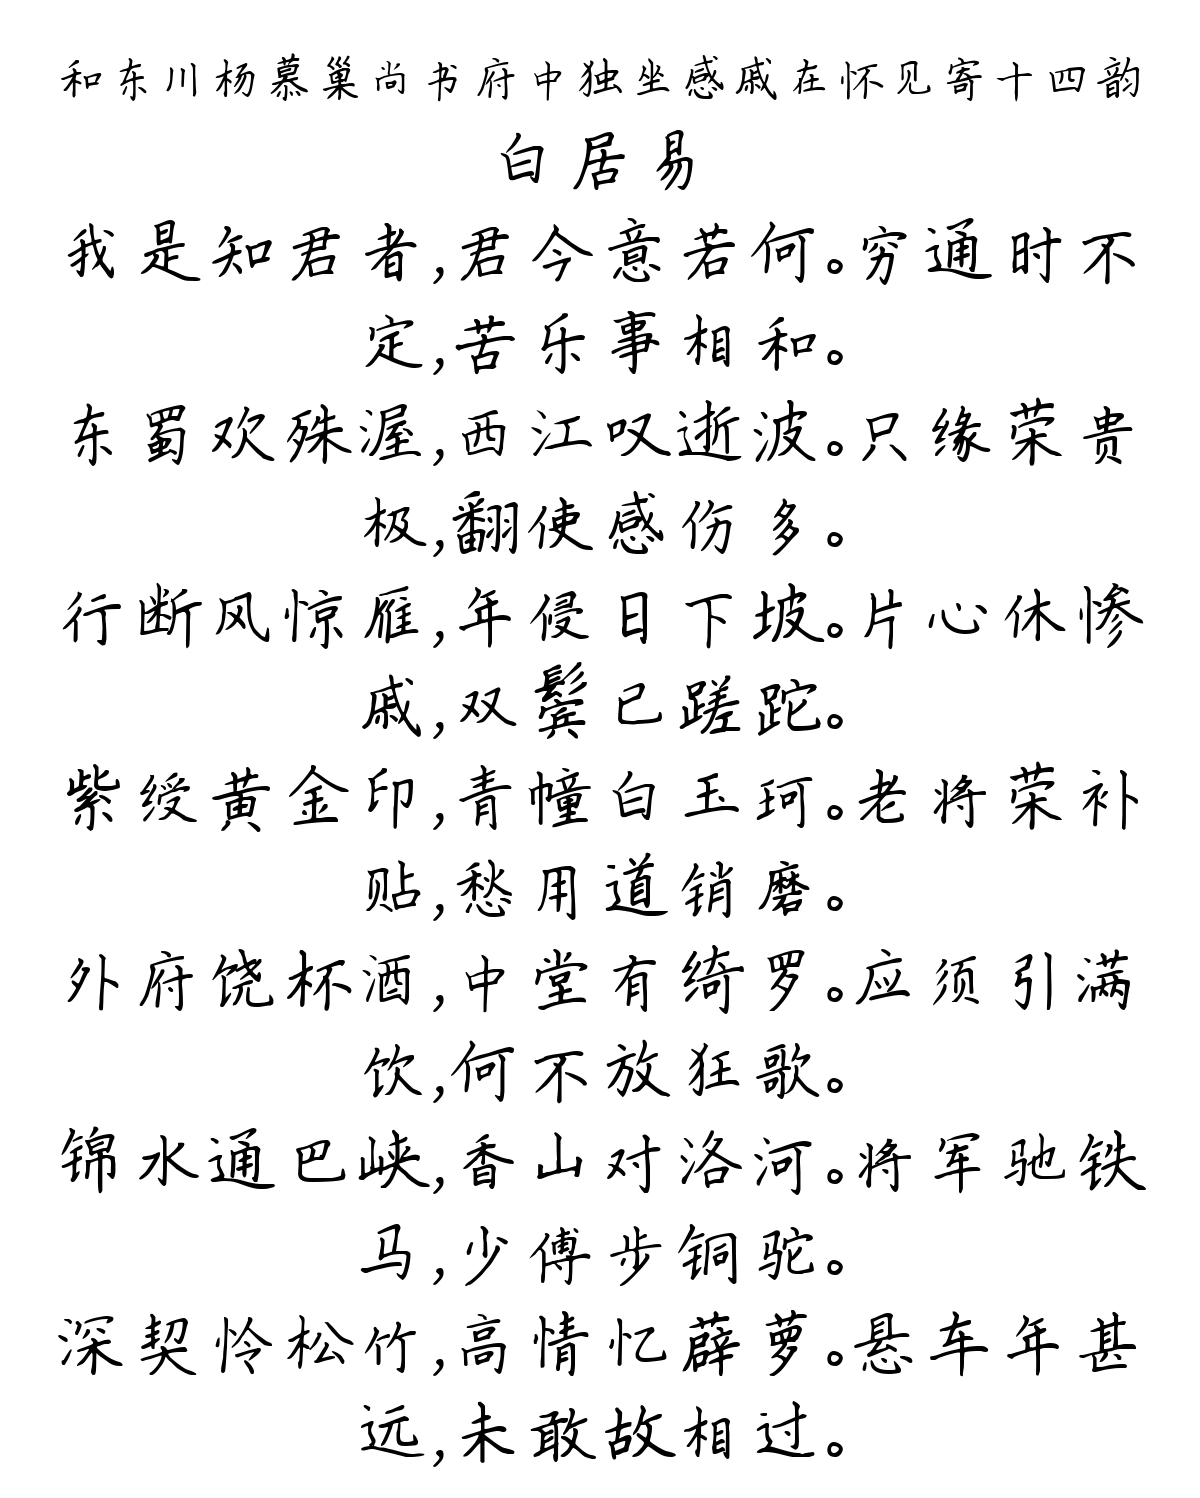 和东川杨慕巢尚书府中独坐感戚在怀见寄十四韵
白居易
我是知君者,君今意若何。穷通时不
定,苦乐事相和。
东蜀欢殊渥,西江叹逝波。只缘荣贵
极,翻使感伤多。
行断风惊雁,年侵日下坡。片心休惨
戚,双鬓已蹉跎。
紫绶黄金印,青幢白玉珂。老将荣补
贴,愁用道销磨。
外府饶杯酒,中堂有绮罗。应须引满
饮,何不放狂歌。
锦水通巴峡,香山对洛河。将军驰铁
马,少傅步铜驼。
深契怜松竹,高情忆薜萝。悬车年甚
远,未敢故相过。